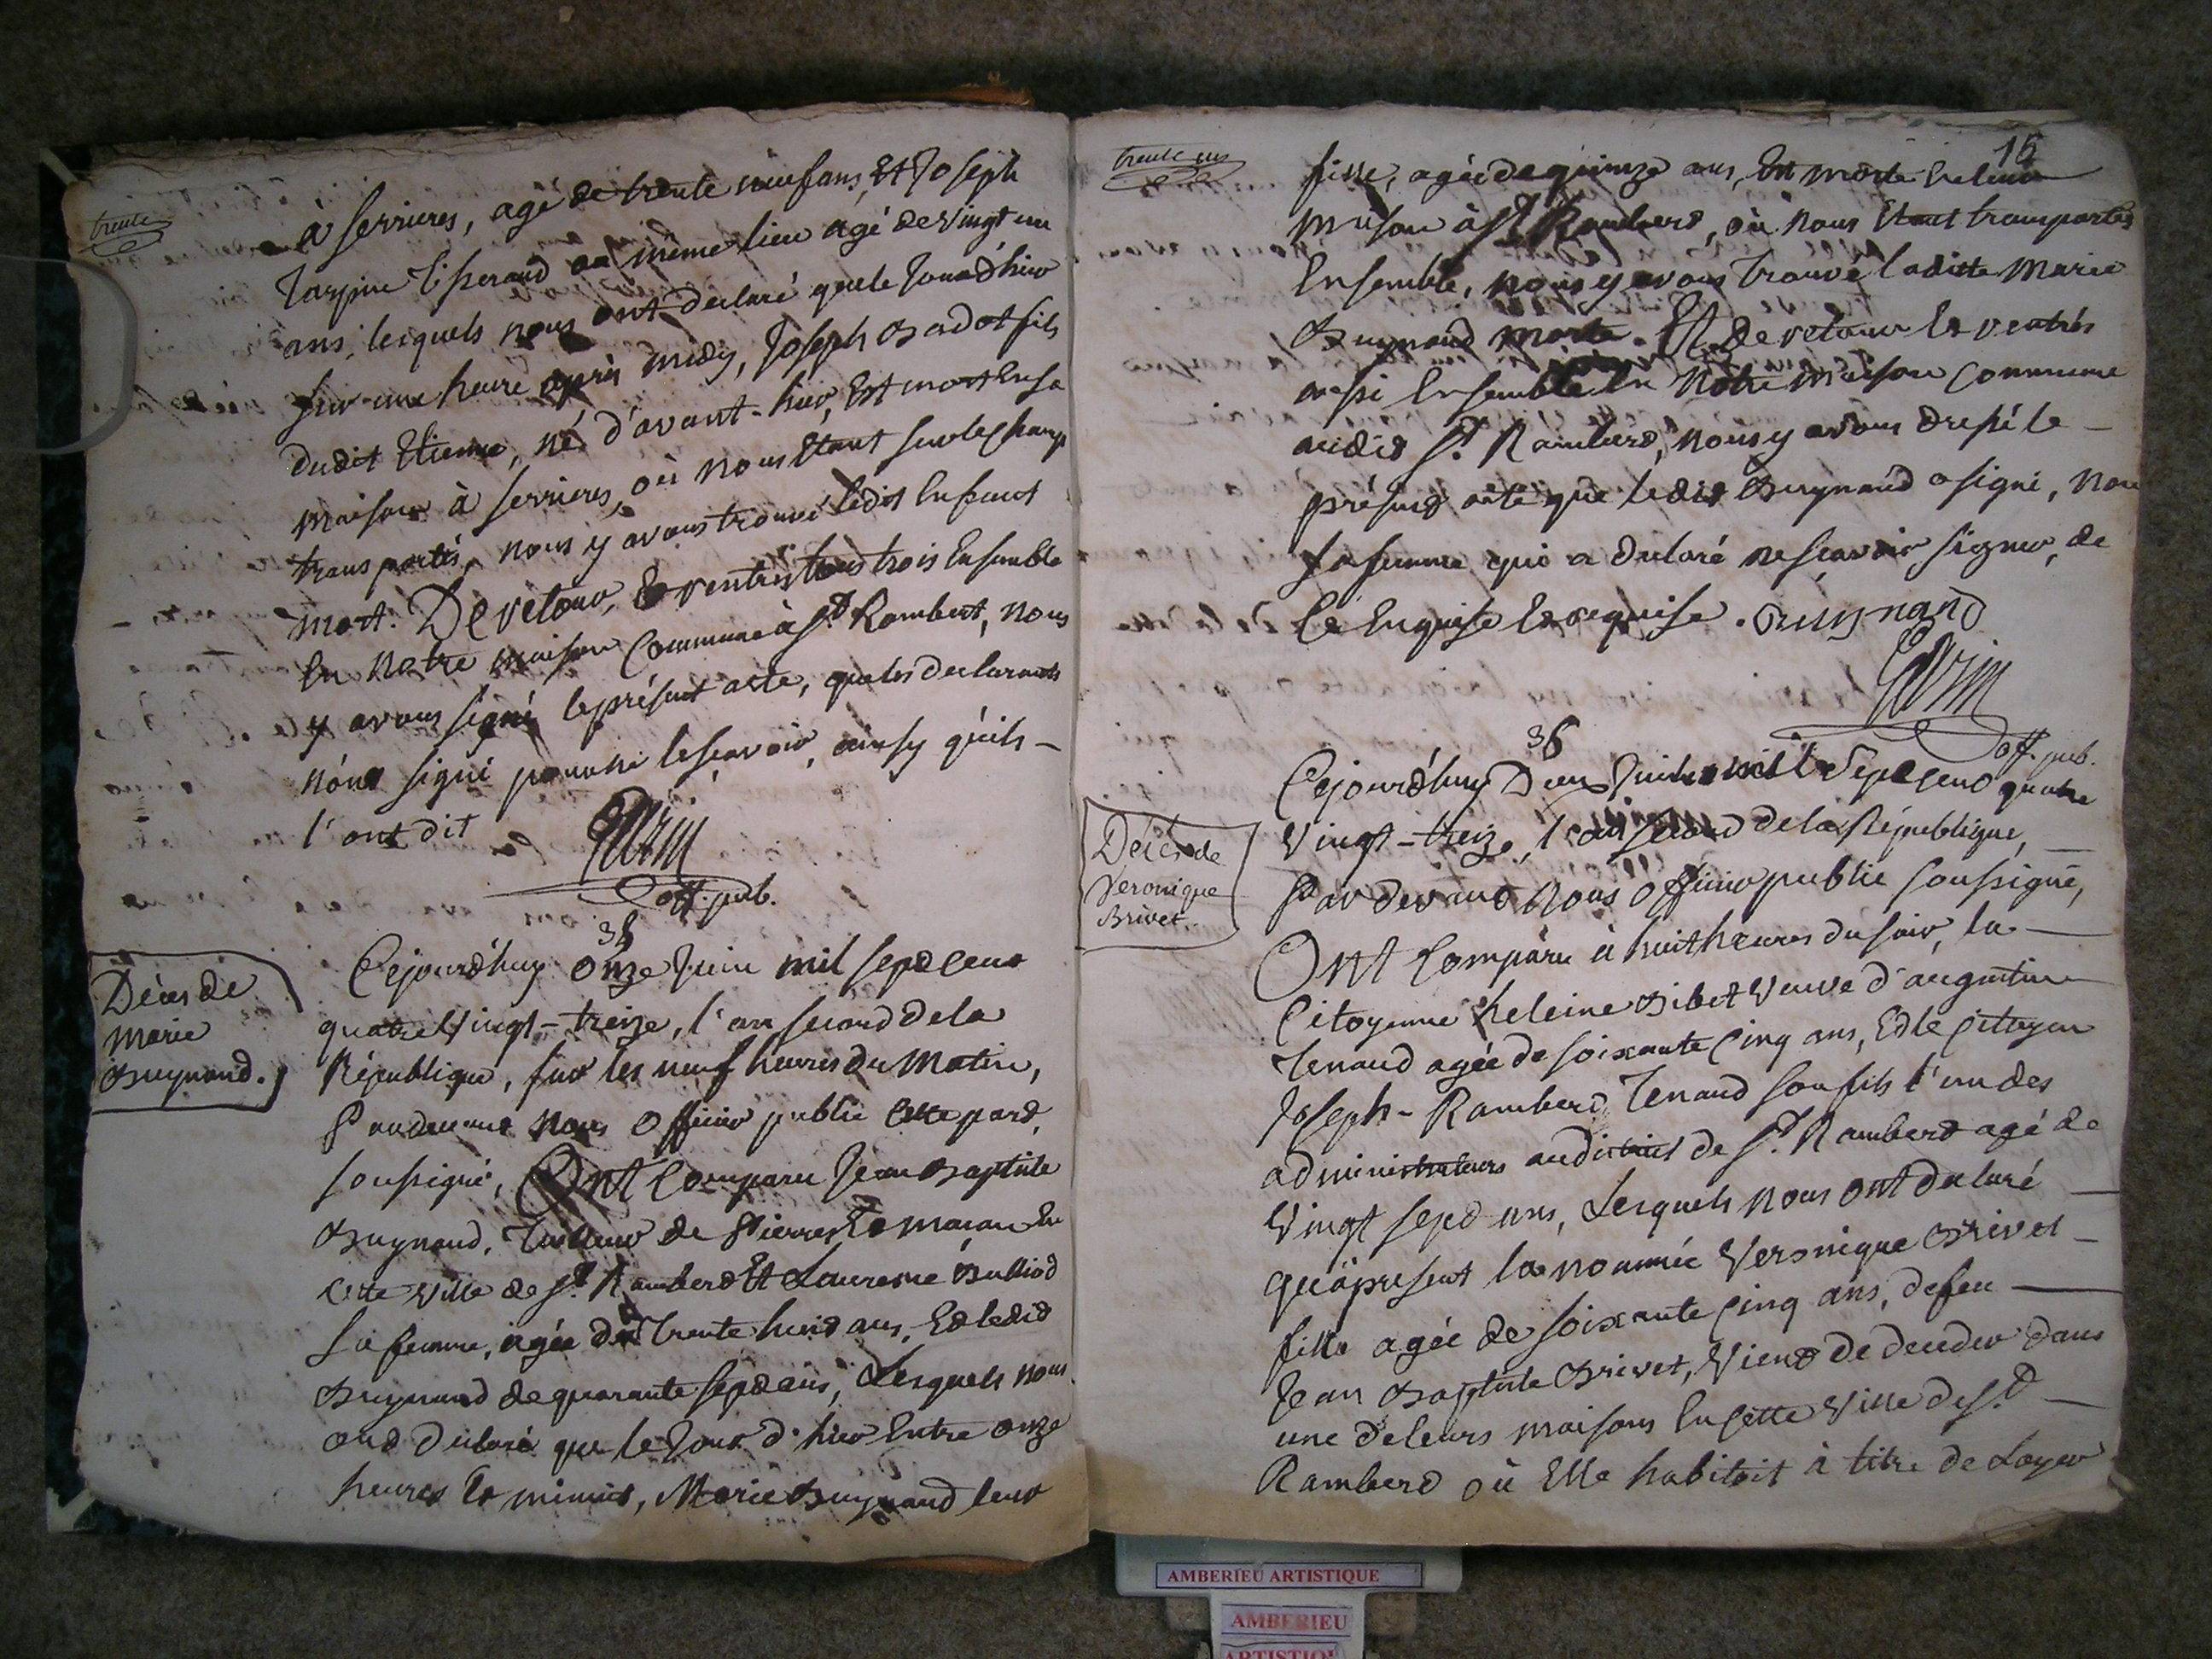 trente
à serrieres, agé de trente neuf ans, Et Joseph
tisserand au même lieu agé de vingt un
ans, lesquels nous ont declaré que le Jour d'hier
sur une heure après midy, Joseph Badot fils
dudit Etienne, né d'avant-hier, Est mort En sa
maison à serrieres, où nous Etant sur le champ
transportés, nous y avons trouvé ledit Enfant
mort. De retour, Et rentrés tous trois Ensemble
En notre maison Commune à St Rambert, nous
y avons signé le présent acte, que les declarants
n'ont signé pour ne le scavoir, ainsy qu'ils -
l'ont dit
off. pub.
35
Décès de
Marie
Buynand.
Cejourd'huy onze Juin mil sept cent
quatre Vingt-treize, l'an second de la
République, sur les neuf heures du Matin,
Pardevant Nous Officier public
soussigné, Ont Comparu Jean Baptiste
Buynand, Tailleur de Pierres Et maçon En
cette Ville de St. Ramberd Et Laurence Bulliod
sa femme, agée de Trente huit ans, Et ledit
Buynand de quarante sept ans, Lesquels nous
ont déclaré que le Jour d'hier Entre onze
heures Et minuit, Marie Buynand leur
trente un
15
fille, agée de quinze ans, Est morte En leur
maison à St Ramberd, où nous Etant transportés
Ensemble, nous y avons trouvé laditte Marie
Buynand morte. Et de retour Et rentrés
aussi Ensemble En Notre maison commune
audit St. Ramberd, nous y avons dressé le -
présent acte que ledit Buynand a signé, non
sa femme qui a declaré ne scavoir signer, de
ce Enquise Et requise. Buynand
off. pub.
36
Décès de
Veronique
Brivet.
Cejourd'huy Deux Juillet mil Sept cent quatre
Vingt-treize, l'an second de la République,
Par devant Nous Officier public soussigné,
Ont Comparu à huit heures du soir, la -
Citoyenne heleine Sibet Veuve d'augustin
Tenand agée de soixante Cinq ans, Et le Citoyen
Joseph-Ramberd Tenand son fils l'un des
administrateurs du district de St. Ramberd agé de
Vingt sept ans, Lesquels nous ont declaré
qu'apresent la nommée Veronique Brivet -
fille agée de soixante Cinq ans, de feu
Jean Baptiste Brivet, Vient de deceder dans
une de leurs maisons En cette Ville de St.
Ramberd où Elle habitoit à titre de Loyer
AMBERIEU ARTISTIQUE
AMBERIEU
ARTISTIQUE